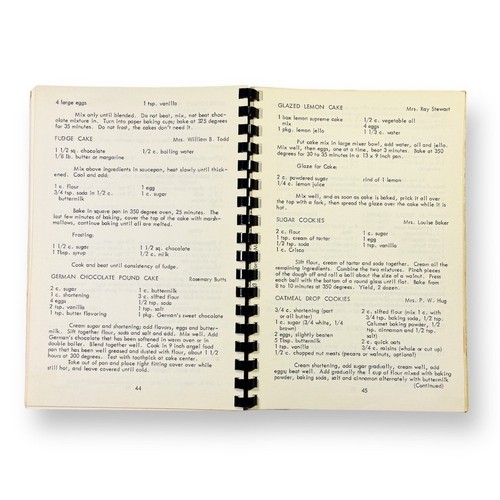 4 large eggs 1 tsp. vanilla
Mix only until blended. Do not beat, mix, not beat choc-
olate mixture in. Turn into paper baking cups; bake at 325 degrees
for 35 minutes. Do not frost, the cakes don't need it.
FUDGE CAKE Mrs. William B. Todd
1 1/2 sq. chocolate 1/2 c. boiling water
1/8 lb. butter or margarine
Mix above ingredients in saucepan, heat slowly until thick-
ened. Cool and add:
1 c. flour 1 egg
3/4 tsp. soda in 1/2 c. 1 c. sugar
buttermilk
Bake in square pan in 350 degree oven, 25 minutes. The
last few minutes of baking, cover the top of cake with marsh-
mallows, continue baking until all are melted.
Frosting:
1 1/2 c. sugar 1 1/2 sq. chocolate
1 tsp. vanilla 1/2 c. milk
Cook and beat until consistency of fudge.
GERMAN CHOCOLATE POUND CAKE Rosemary Butts
2 c. sugar 1 c. buttermilk
1 c. shortening 3 c. sifted flour
4 eggs 1/2 tsp. soda
2 tsp. vanilla 1 tsp. salt
1 tsp. butter flavoring 1 pkg. German's sweet chocolate
Cream sugar and shortening; add eggs, flavors and butter-
milk. Sift together flour, soda and salt and add. Mix well. Add
German's chocolate that has been softened in warm oven or in
double boiler. Blend together well. Cook in 9 inch angel food
pan that has been well greased and dusted with flour, about 1 1/2
hours at 300 degrees. Test with toothpick at cake testing time.
Take out of pan and place tight fitting cover over while
still hot, and leave covered until cold.
44
GLAZED LEMON CAKE Mrs. Ray Stewart
1 box lemon supreme cake 1/2 c. vegetable oil
mix 4 eggs
1 pkg. lemon jello 1 1/3 c. water
Put cake mix in large mixer bowl, add water, oil and jello.
Mix well, then eggs, one at a time, beat 3 minutes. Bake at 350
degrees for 30 to 35 minutes in a 13 x 9 inch pan.
Glaze for Cake:
2 c. powdered sugar rind of 1 lemon
1/4 c. lemon juice
Mix well, and as soon as cake is baked, prick it all over
the top with a fork, then spread the glaze over the cake while it is
hot.
SUGAR COOKIES Mrs. Louise Baker
2 c. flour 1 c. sugar
1 tsp. cream of tartar 1 egg
1/2 tsp. soda 1 tsp. vanilla
1 c. Crisco
Sift flour, cream of tartar and soda together. Cream all the
remaining ingredients. Combine the two mixtures. Pinch pieces
of the dough off and roll a ball about the size of a walnut. Press
each ball with the bottom of a round glass until flat. Bake from
8 to 10 minutes at 350 degrees. Yield, 3 dozen.
OATMEAL DROP COOKIES Mrs. P. W. Hug
3/4 c. shortening (part 2 c. sifted flour (mix 1 c. with
or all butter) 3/4 tsp. baking soda, 1/2 tsp.
1 c. sugar (3/4 white, 1/4 Calumet baking powder, 1/2
brown) tsp. cinnamon and 1/2 tsp.
2 eggs, slightly beaten salt)
5 Tbsp. buttermilk 2 c. quick oats
1 tsp. vanilla 3/4 c. raisins (whole or cut up)
1/2 c. chopped nut meats (pecans or walnuts, optional)
Cream shortening, add sugar gradually, cream well, add
eggs; beat well. Add gradually the 1 cup of flour mixed with baking
powder, baking soda, salt and cinnamon alternately with buttermilk
(Continued)
45